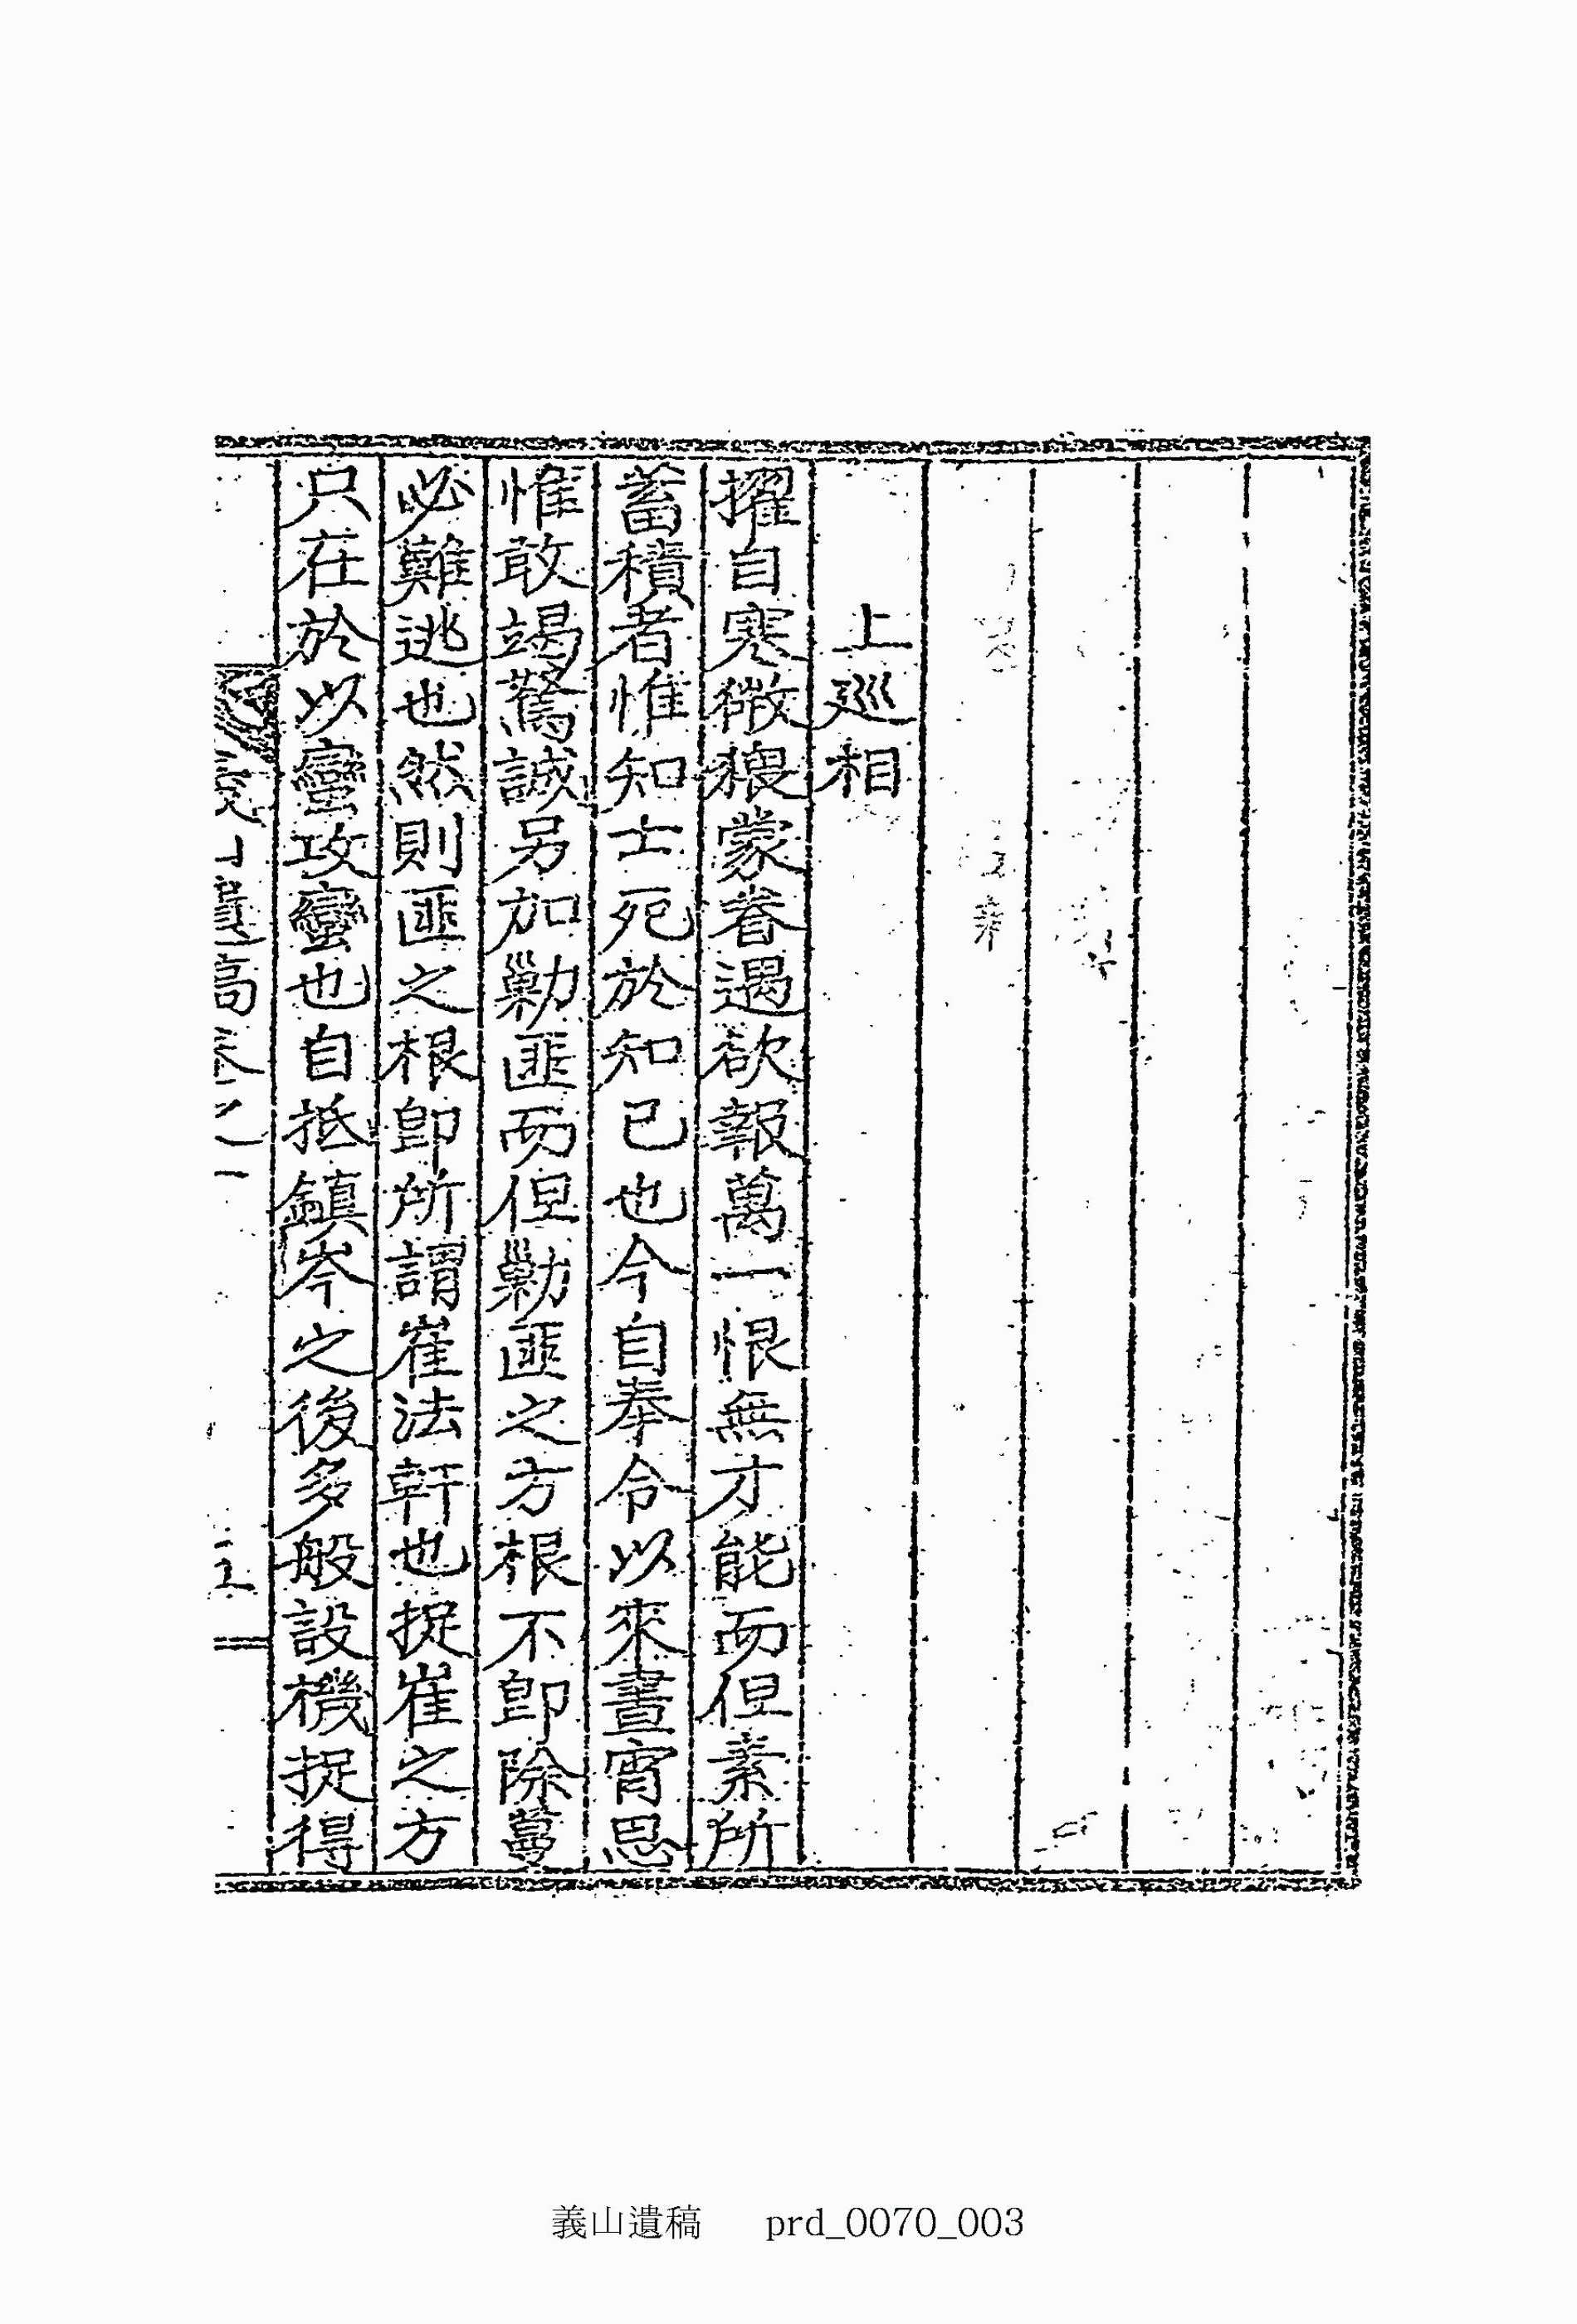 上巡相
擢自寒微猥蒙眷遇欲報萬一恨無才能而但素所
蓄積者惟知士死於知已也今自奉令以來晝宵思
惟敢竭駑誠另加勦匪而但勦匪之方根不卽除蔓
必難逃也然則匪之根卽所謂崔法軒也捉崔之方
只在於以蠻攻蠻也自抵鎮岑之後多般設機捉得
義山遺稿 prd_0070_003